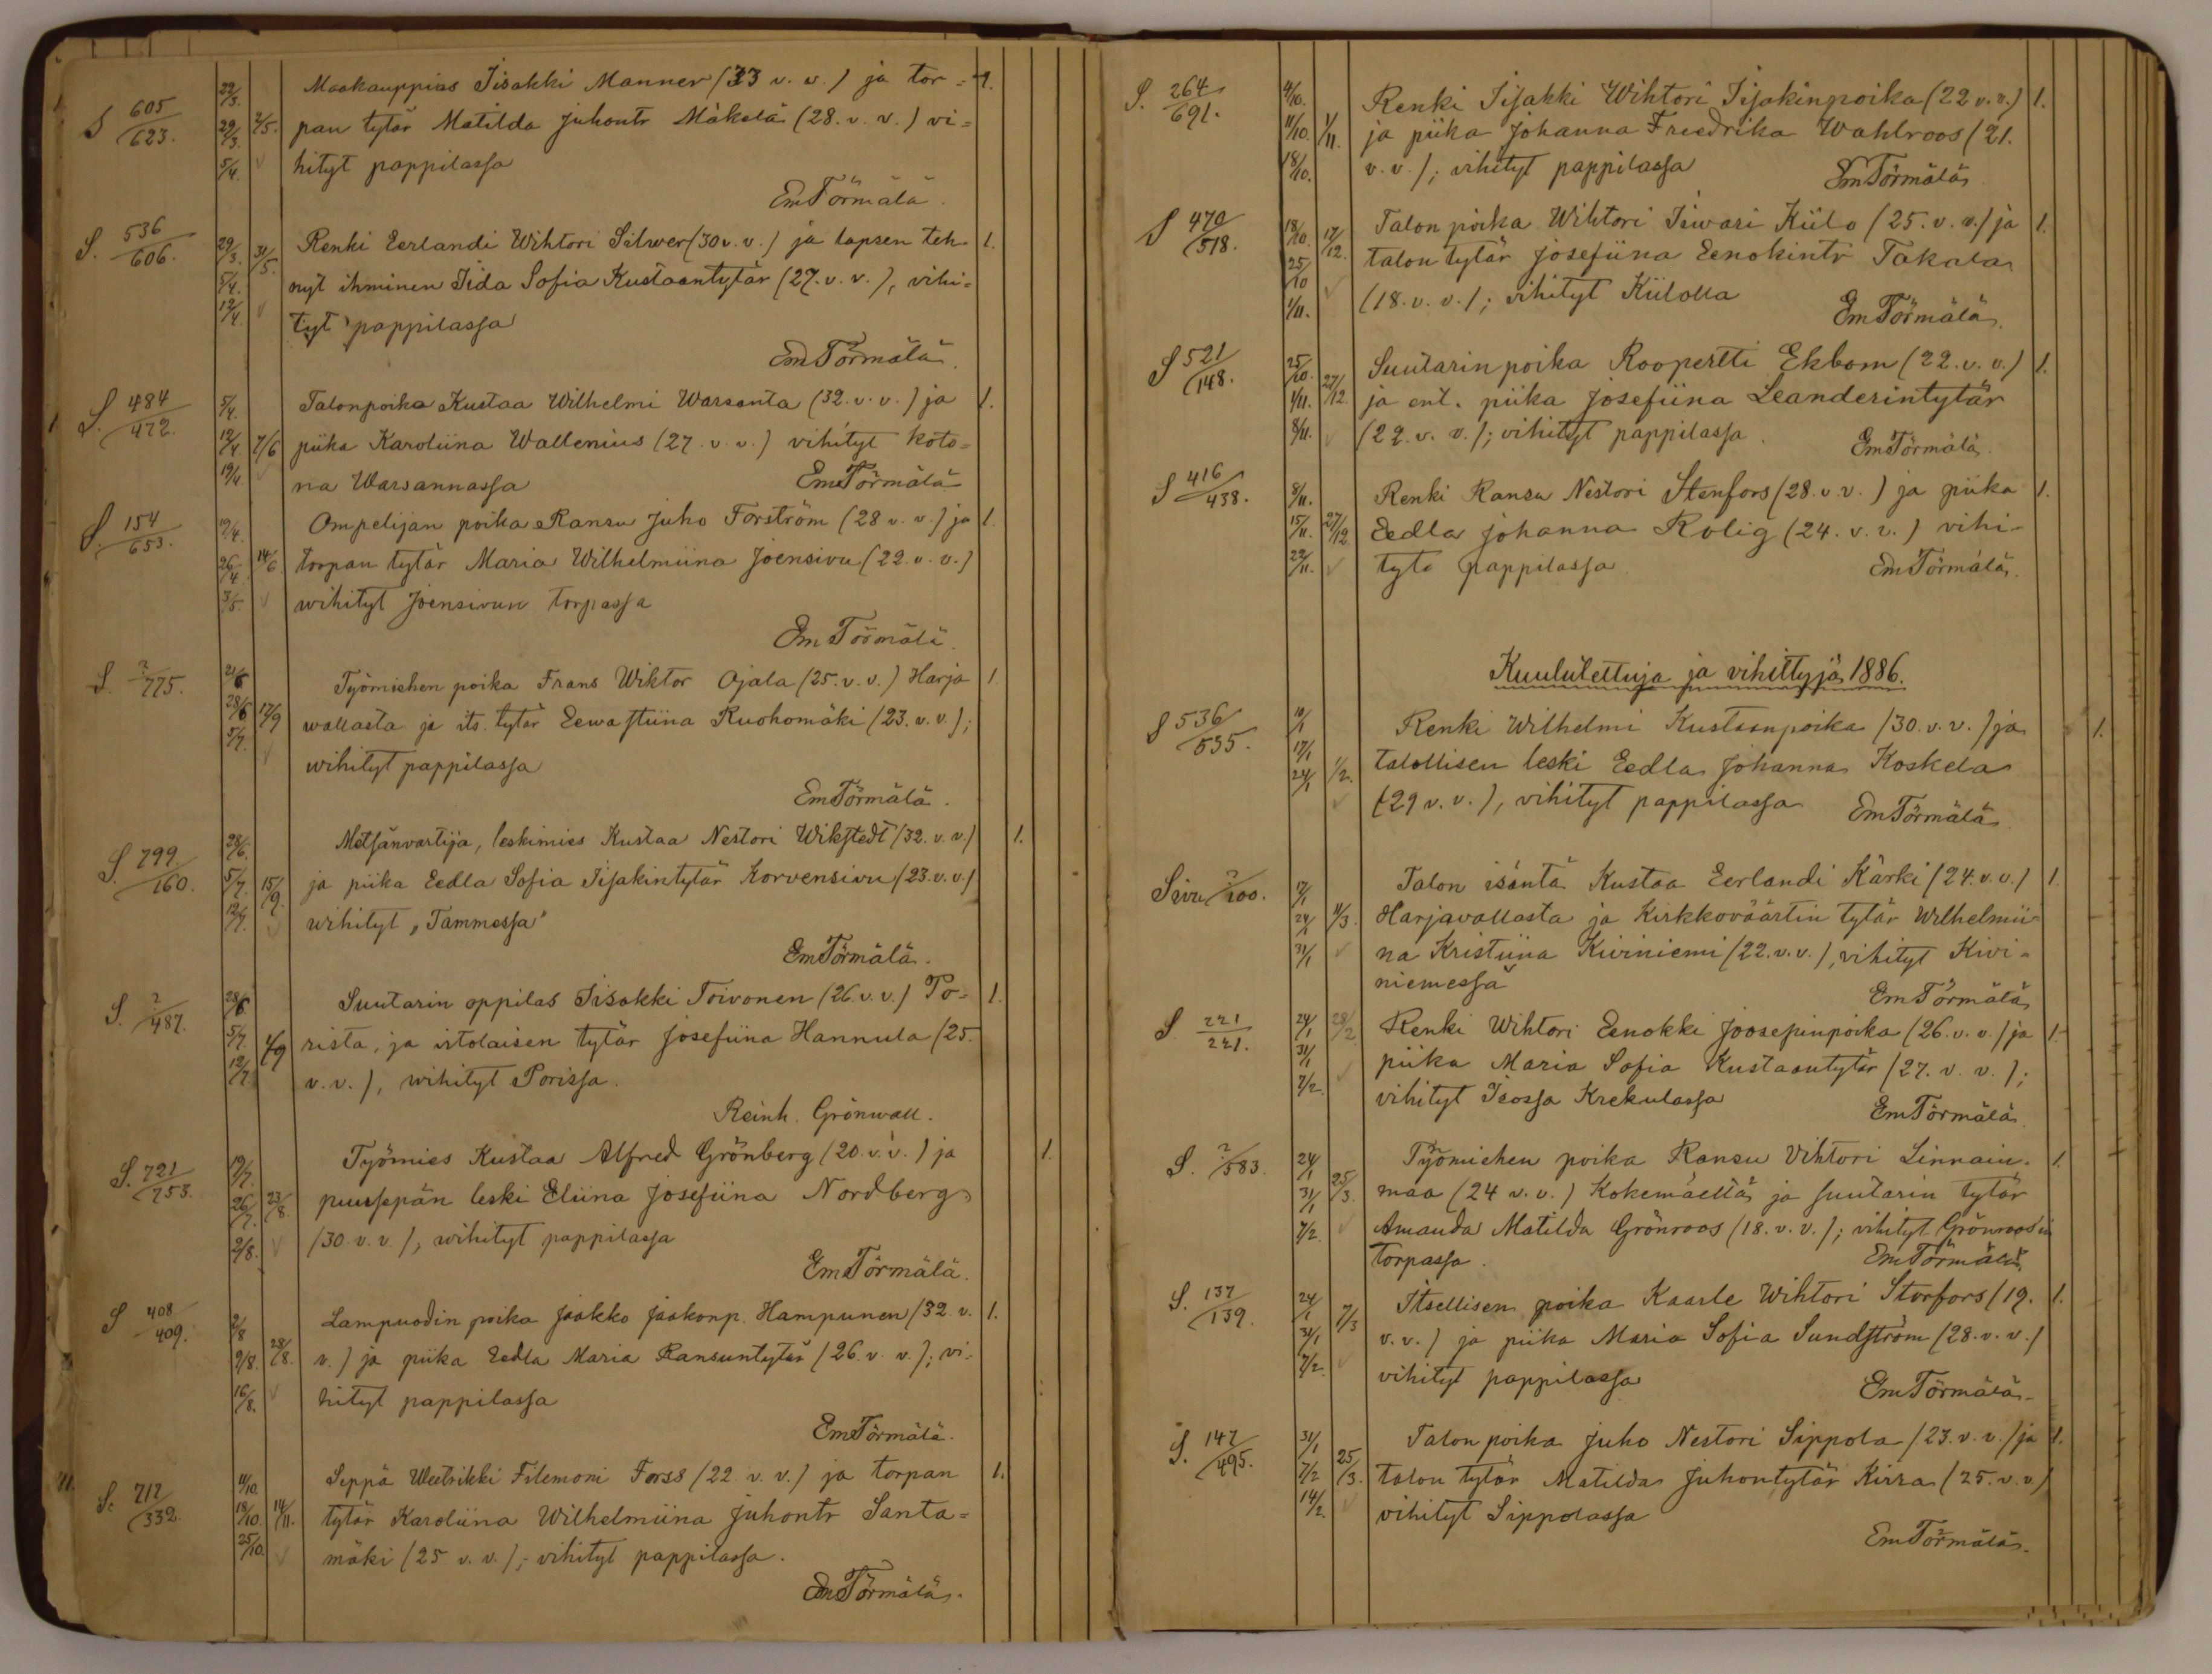 S 605/623. 22/3. 29/3. 5/4. 2/5. Maakauppias Iisakki Manner (33 v. v.) ja tor= 1.
pan tytär Matilda Juhontr Mäkelä (28. v. v.) vi=
hityt pappilassa
Em Törmälä.
S. 536/606. 29/3. 5/4. 12/4. 31/5. Renki Eerlandi Wihtori Silwer (30 v. v.) ja lapsen teh- 1.
nyt ihminen Iida Sofia Kustaantytär (27. v. v.), vihi=
tyt pappilassa
Em Törmälä.
S. 484/472. 5/4. 12/4. 19/4 7/6 Talonpoika Kustaa Wilhelmi Warsanta (32. v. v.) ja 1.
piika Karoliina Wallenius (27. v. v.) vihityt koto=
na Warsannassa Em Törmälä
S. 154/653. 19/4. 26/4 3/5. 14/6 Ompelijan poika Ransu Juho Forström (28 v. v.) ja 1.
torpan tytär Maria Wilhelmiina Joensivu (22. v. v.)
wihityt Joensivun torpassa
Em Törmälä.
S. ?/775. 21/6 28/6 5/7. 17/9 Työmiehen poika Frans Wiktor Ojala (25. v. v.) Harja 1.
wallasta ja its. tytär Eewastiina Ruohomäki (23. v. v.);
wihityt pappilassa
Em Törmälä.
S. 799/160. 28/6. 5/7. 12/7. 15/9. Metsänvartija, leskimies Kustaa Nestori Wikstedt (32. v. v.) 1.
ja piika Eedla Sofia Iisakintytär Korvensivu (23. v. v.)
wihityt „Tammessa"
Em Törmälä.
S. ?/487. 28/6 5/7. 12/7. 4/9 Suutarin oppilas Iisakki Toivonen (26. v. v.) Po= 1.
rista, ja irtolaisen tytär Josefiina Hannula (25.
v. v.), wihityt Porissa.
Reinh. Grönwall.
S. 721/753. 19/7. 26/7. 2/8. 23/8. Työmies Kustaa Alfred Grönberg (20. v. v.) ja 1.
puusepän leski Eliina Josefiina Nordberg
(30 v. v.), wihityt pappilassa
Em Törmälä.
S 408/409. 2/8 9/8. 16/8. 28/8. Lampuodin poika Jaakko Jaakonp. Hampunen (32. v. 1.
v.) ja piika Eedla Maria Ransuntytär (26. v. v.); vi=
hityt pappilassa
Em Törmälä.
S. 717/332. 11/10. 18/10. 25/10. 14/11. Seppä Weetrikki Filemoni Forss (22. v. v.) ja torpan 1.
tytär Karoliina Wilhelmiina Juhontr Santa=
mäki (25 v. v.); vihityt pappilassa.
Em Törmälä.
S. 264/691. 4/10. 11/10. 18/10. 1/11. Renki Iisakki Wihtori Iisakinpoika (22 v. v.) 1.
ja piika Johanna Freedrika Wahlroos (21.
v. v.); vihityt pappilassa Em Törmälä
S 470/518. 18/10. 25/10 1/11. 17/12. Talon poika Wihtori Iiwari Kiilo (25. v. v.) ja 1.
talon tytär Josefiina Eenokintr Takala
(18. v. v.); vihityt Kiilolla
Em Törmälä.
S 521/148. 25/10. 1/11. 8/11. 27/12. Suutarin poika Roopertti Ekbom (22. v. v.) 1.
ja ent. piika Josefiina Leanderintytär
(22. v. v.); vihityt pappilassa.
Em Törmälä.
S 416/438. 8/11. 15/11. 22/11. 27/12. Renki Ransu Nestori Stenfors (28. v. v.) ja piika 1.
Eedla Johanna Rolig (24. v. v.) vihi-
tyt pappilassa Em Törmälä.
Kuulutettuja ja vihittyjä 1886.
S 536/535. 10/1 17/1 24/1 1/2. Renki Wilhelmi Kustaanpoika (30. v. v.) ja 1.
talollisen leski Eedla Johanna Koskela
(29 v. v.), vihityt pappilassa Em Törmälä
Sivu ?/200. 17/1 24/1 31/1 11/3. Talon isäntä Kustaa Eerlandi Kärki (24. v. v.) 1.
Harjavallasta ja Kirkkoväärtin tytär Wilhelmii-
na Kristiina Kiviniemi (22. v. v.), vihityt Kivi-
niemessä Em Törmälä
S 221/221. 24/1 31/1 7/2. 28/2 Renki Wihtori Eenokki Joosepinpoika (26. v. v.) ja 1.
piika Maria Sofia Kustaantytär (27. v. v.);
vihityt Isossa Krekulassa Em Törmälä
S. ?/583. 24/1 31/1 7/2. 25/3. Työmiehen poika Ransu Vihtori Linnain- 1.
maa (24 v. v.) Kokemäeltä ja suutarin tytär
Amanda Matilda Grönroos (18. v. v.); vihityt Grönroosin
torpassa. Em Törmälä.
S. 137/139. 24/1 31/1 7/2. 7/3 Itsellisen poika Kaarle Wihtori Storfors (19. 1.
v. v.) ja piika Maria Sofia Sundström (28. v. v.)
vihityt pappilassa
Em Törmälä.
S. 147/495. 31/1 7/2 14/2. 25/3. Talon poika Juho Nestori Sippola (23. v. v.) ja 1.
talon tytär Matilda Juhontytär Kirra (25. v. v.)
vihityt Sippolassa
Em Törmälä.